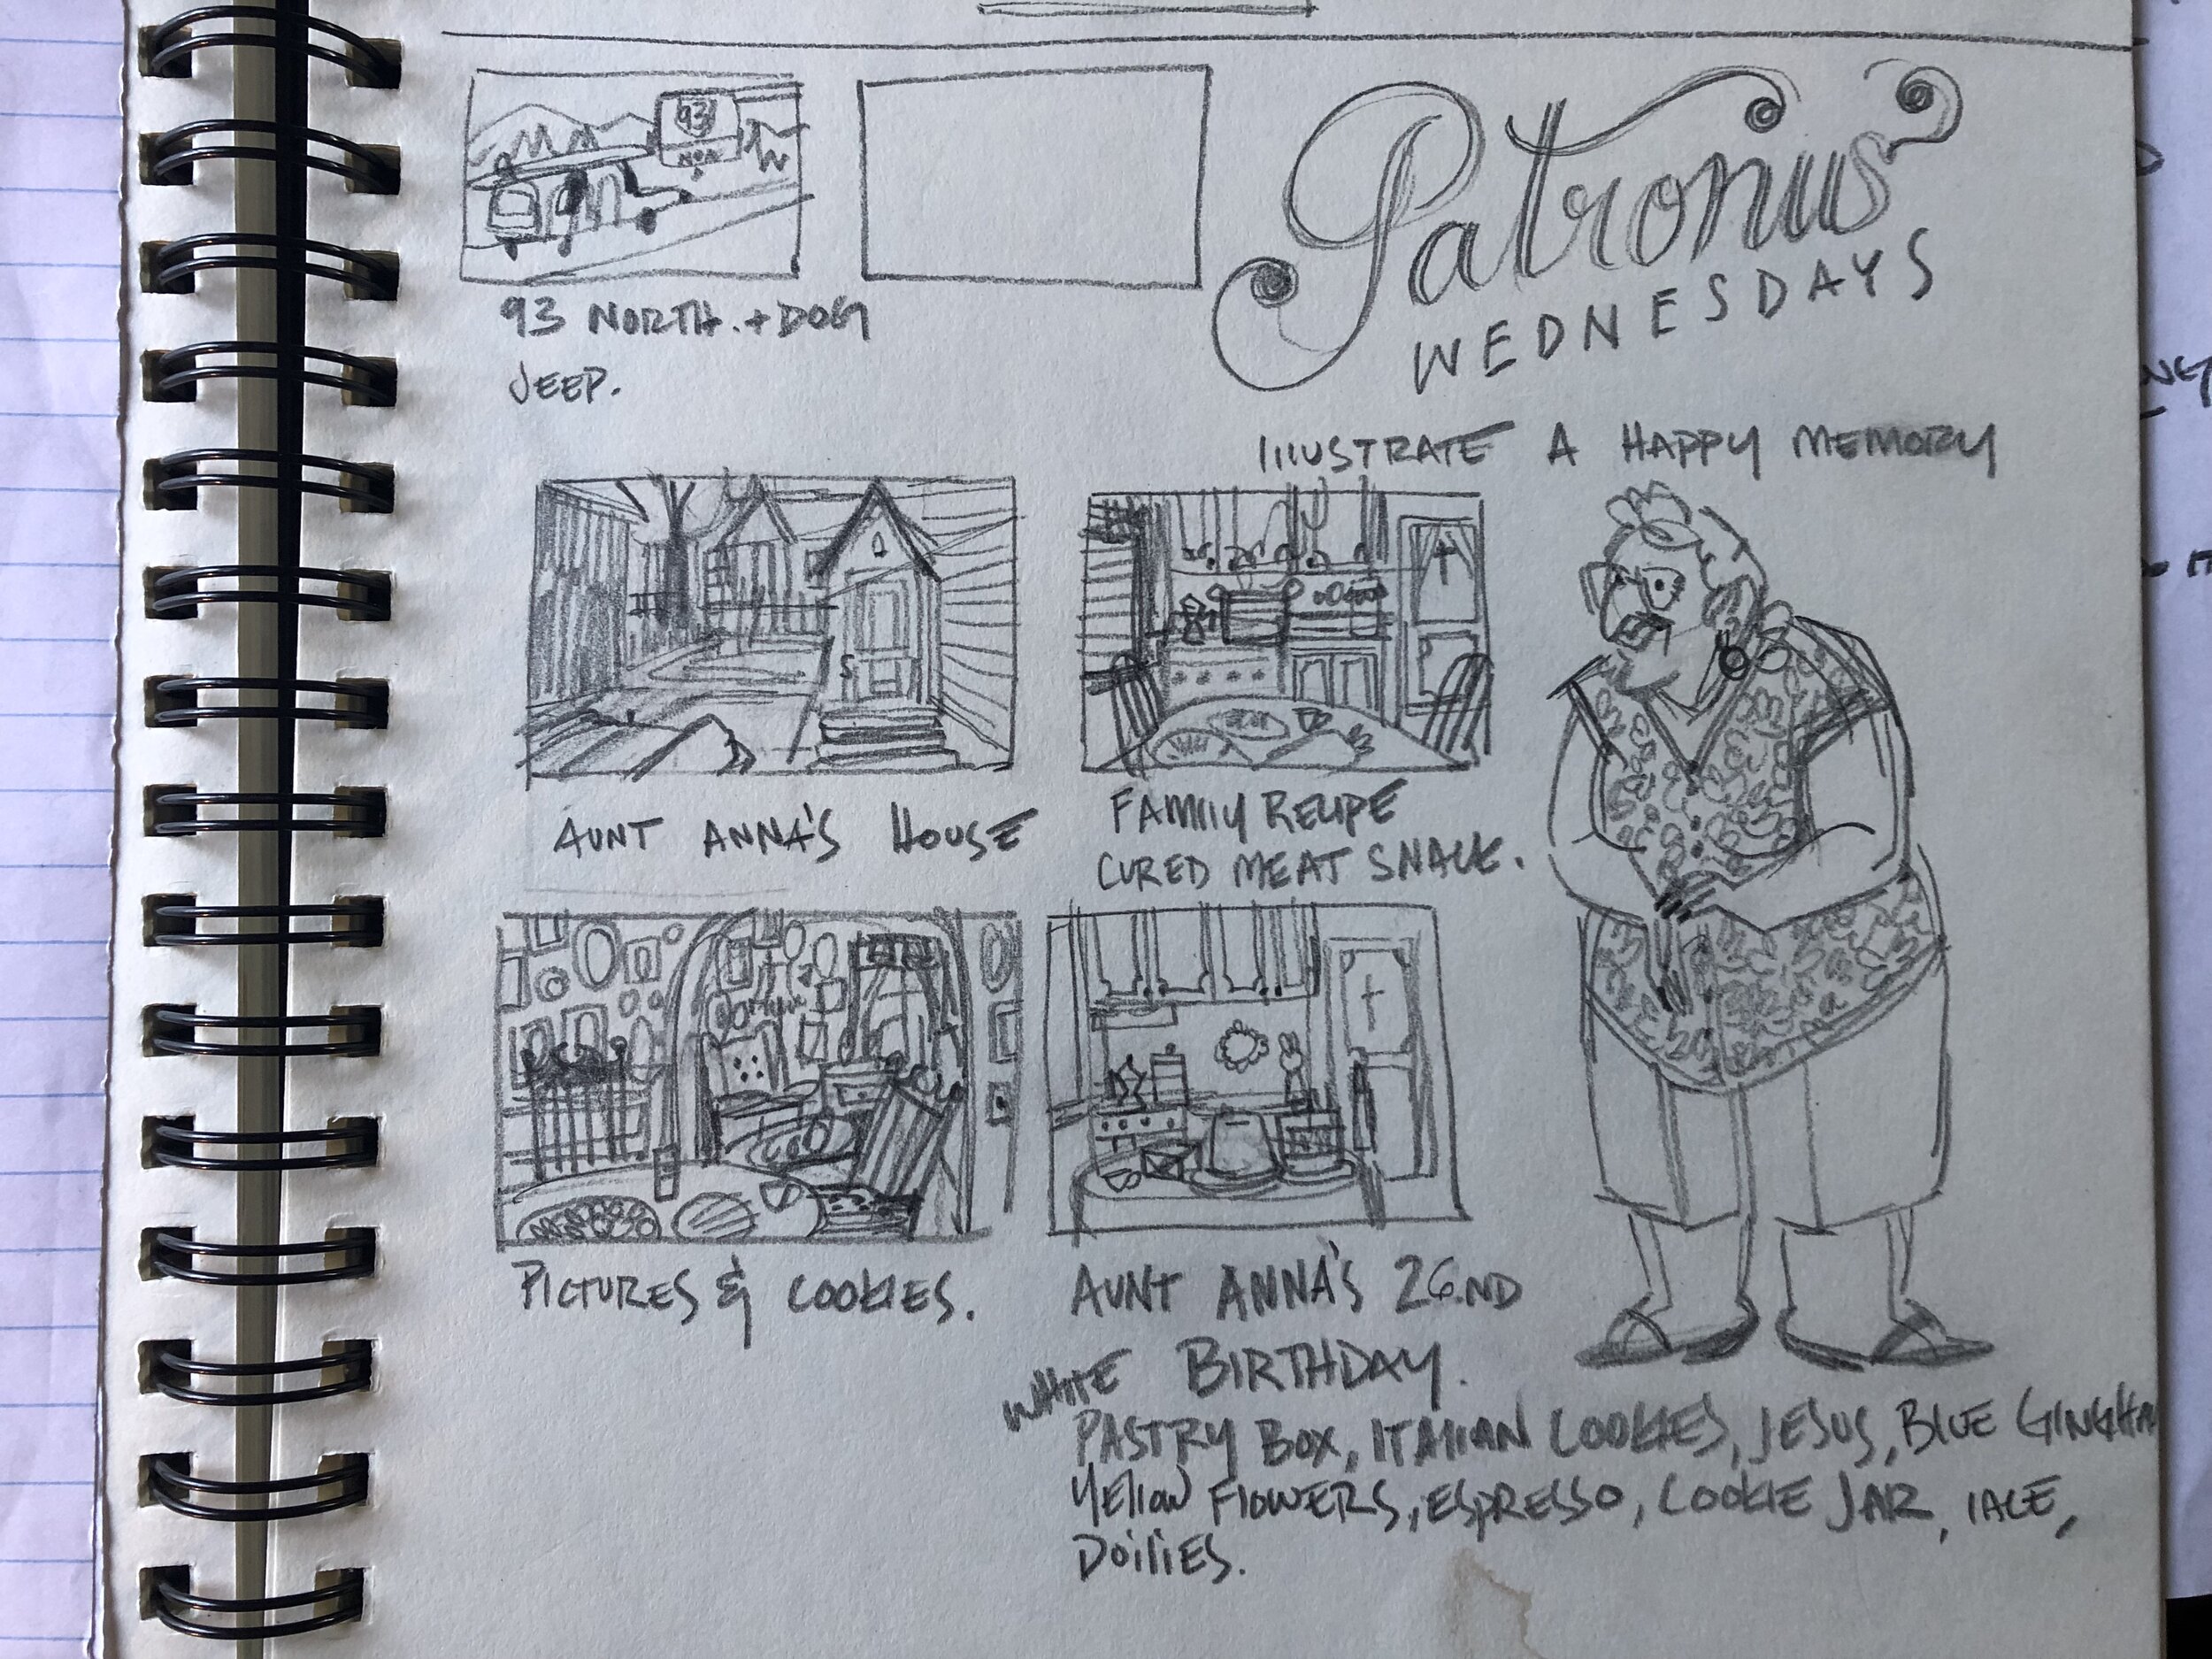 93
93 NORTH. + DOG
JEEP.
Patronus
WEDNESDAYS
ILLUSTRATE A HAPPY MEMORY
AUNT ANNA'S HOUSE
FAMILY RECIPE
CURED MEAT SNACK.
PICTURES & COOKIES.
AUNT ANNA'S 26ND
BIRTHDAY.
WHITE
PASTRY BOX, ITALIAN COOKIES, JESUS, BLUE GINGHAM
YELLOW FLOWERS, ESPRESSO, COOKIE JAR, LACE,
DOILIES.